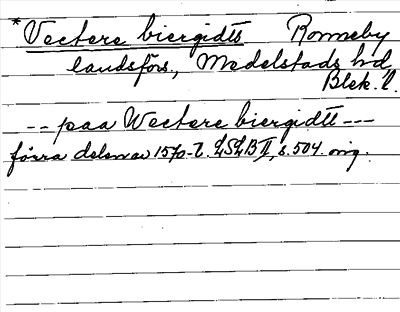 *Vectere biergidtt Ronneby
landsförs., Medelstads hd
Blek. l.
-- paa Wectere biergidtt ---
förra delen av 1570-t. LSLB II, s. 504. orig.